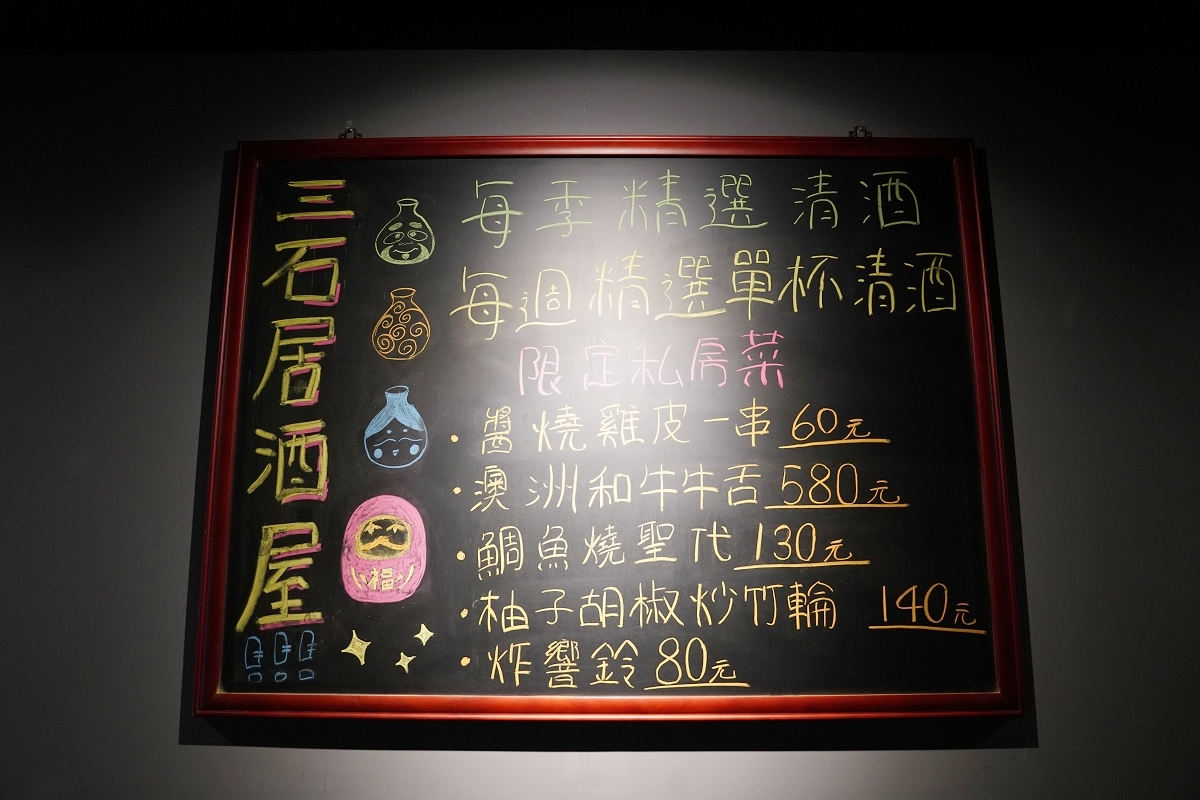 三石居酒屋
每季精選清酒
每週精選單杯清酒
限定私房菜
·醬燒雞皮一串 60元
·澳洲和牛牛舌 580元
·鯛魚燒聖代 130元
·柚子胡椒炒竹輪 140元
·炸響鈴 80元
福